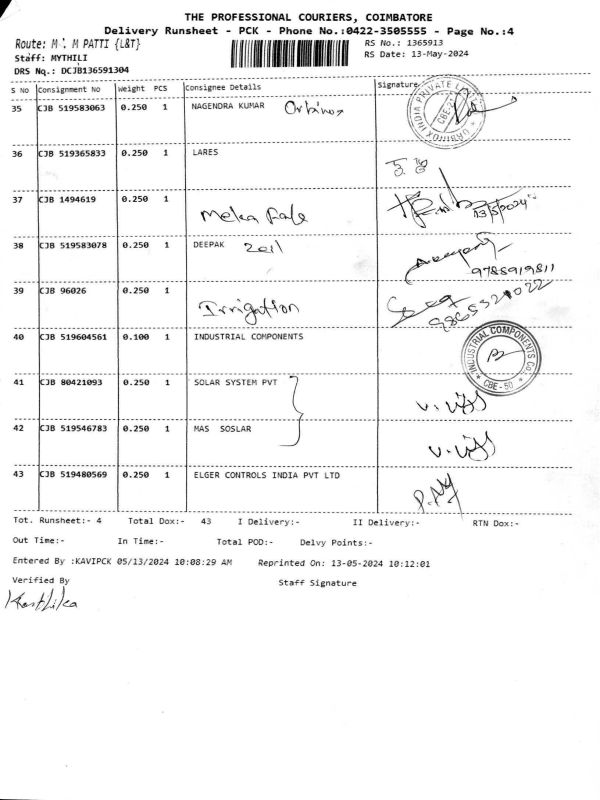 THE PROFESSIONAL COURIERS, COIMBATORE
Delivery Runsheet - PCK - Phone No.:0422-3505555 - Page No.:4
Route: M . M PATTI {L&T}
RS No.: 1365913
Staff: MYTHILI
RS Date: 13-May-2024
DRS Nq.: DCJB136591304
S No Consignment No Weight PCS Consignee Details Signature
35 CJB 519583063 0.250 1 NAGENDRA KUMAR
36 CJB 519365833 0.250 1 LARES
37 CJB 1494619 0.250 1
13/5/2024
38 CJB 519583078 0.250 1 DEEPAK
9785919811
39 CJB 96026 0.250 1 Irrigation
9865321022
40 CJB 519604561 0.100 1 INDUSTRIAL COMPONENTS
INDUSTRIAL COMPONENTS Co. CBE-50
41 CJB 80421093 0.250 1 SOLAR SYSTEM PVT
42 CJB 519546783 0.250 1 MAS SOSLAR
43 CJB 519480569 0.250 1 ELGER CONTROLS INDIA PVT LTD
Tot. Runsheet:- 4 Total Dox:- 43 I Delivery:- II Delivery:- RTN Dox:-
Out Time:- In Time:- Total POD:- Delvy Points:-
Entered By :KAVIPCK 05/13/2024 10:08:29 AM Reprinted On: 13-05-2024 10:12:01
Verified By Staff Signature